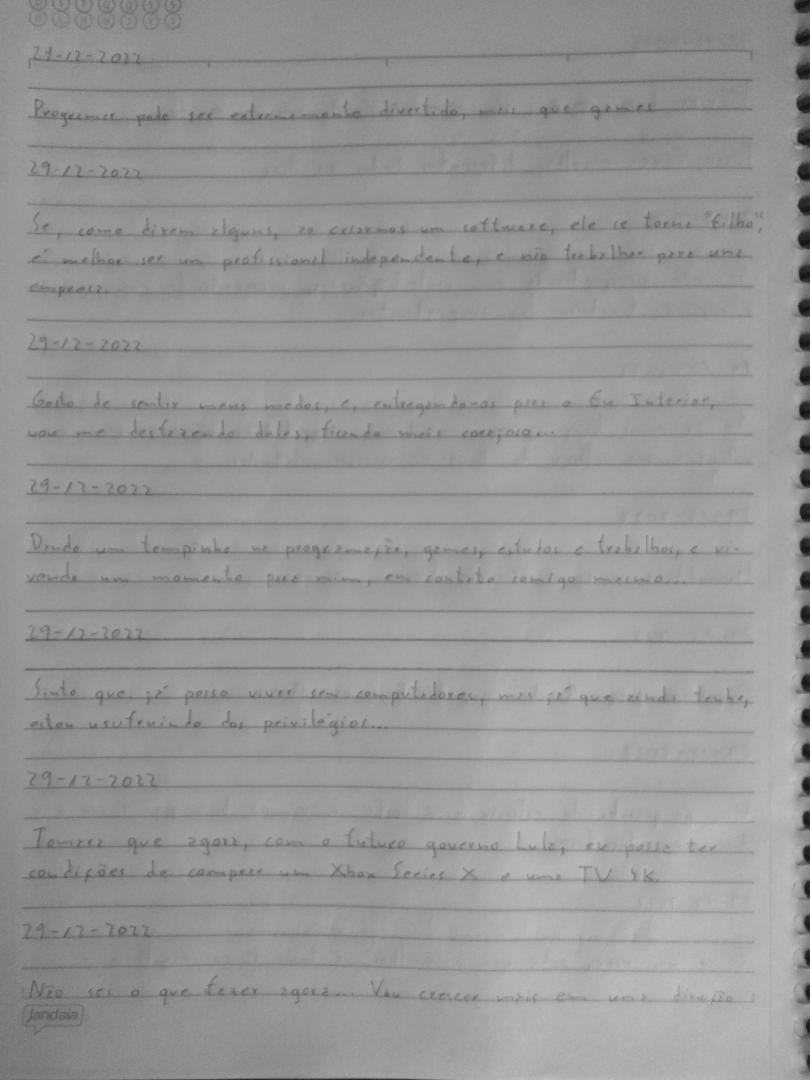 29-12-2022
Programar pode ser extremamente divertido, mais que games
29-12-2022
Se, como dizem alguns, ao criarmos um software, ele se torna "filho",
é melhor ser um profissional independente, e não trabalhar para uma
empresa.
29-12-2022
Gosto de sentir meus medos, e, entregando-os para o Eu Interior,
vou me desfazendo deles, ficando mais corajoso...
29-12-2022
Dando um tempinho na programação, games, estudos e trabalhos, e vi-
vendo um momento para mim, em contato comigo mesmo...
29-12-2022
Sinto que já posso viver sem computadores, mas já que ainda tenho,
estou usufruindo dos privilégios...
29-12-2022
Tomara que agora, com o futuro governo Lula, eu possa ter
condições de comprar um Xbox Series X e uma TV 4K.
29-12-2022
Não sei o que fazer agora... Vou crescer mais em uma direção
Jandaia